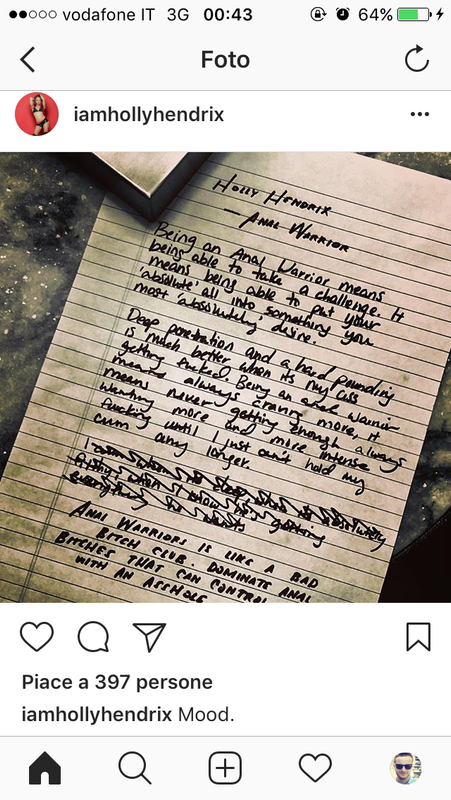 vodafone IT 3G 00:43 64%
Foto
iamhollyhendrix
HOLLY HENDRIX
— ANAL WARRIOR
Being an Anal Warrior means
being able to take a challenge. It
means being able to put your
'absolute' all into something you
most 'absolutely' desire.
Deep penetration and a hard pounding
is much better when its my ass
getting fucked. Being an anal warrior
means always craving more, it
means never getting enough always
wanting more and more intense
fucking until I just can't hold my
cum any longer.
absolutely
getting
ANAL WARRIORS IS LIKE A BAD
BITCH CLUB. DOMINATE ANAL
BITCHES THAT CAN CONTROL
WITH AN ASSHOLE
Piace a 397 persone
iamhollyhendrix Mood.